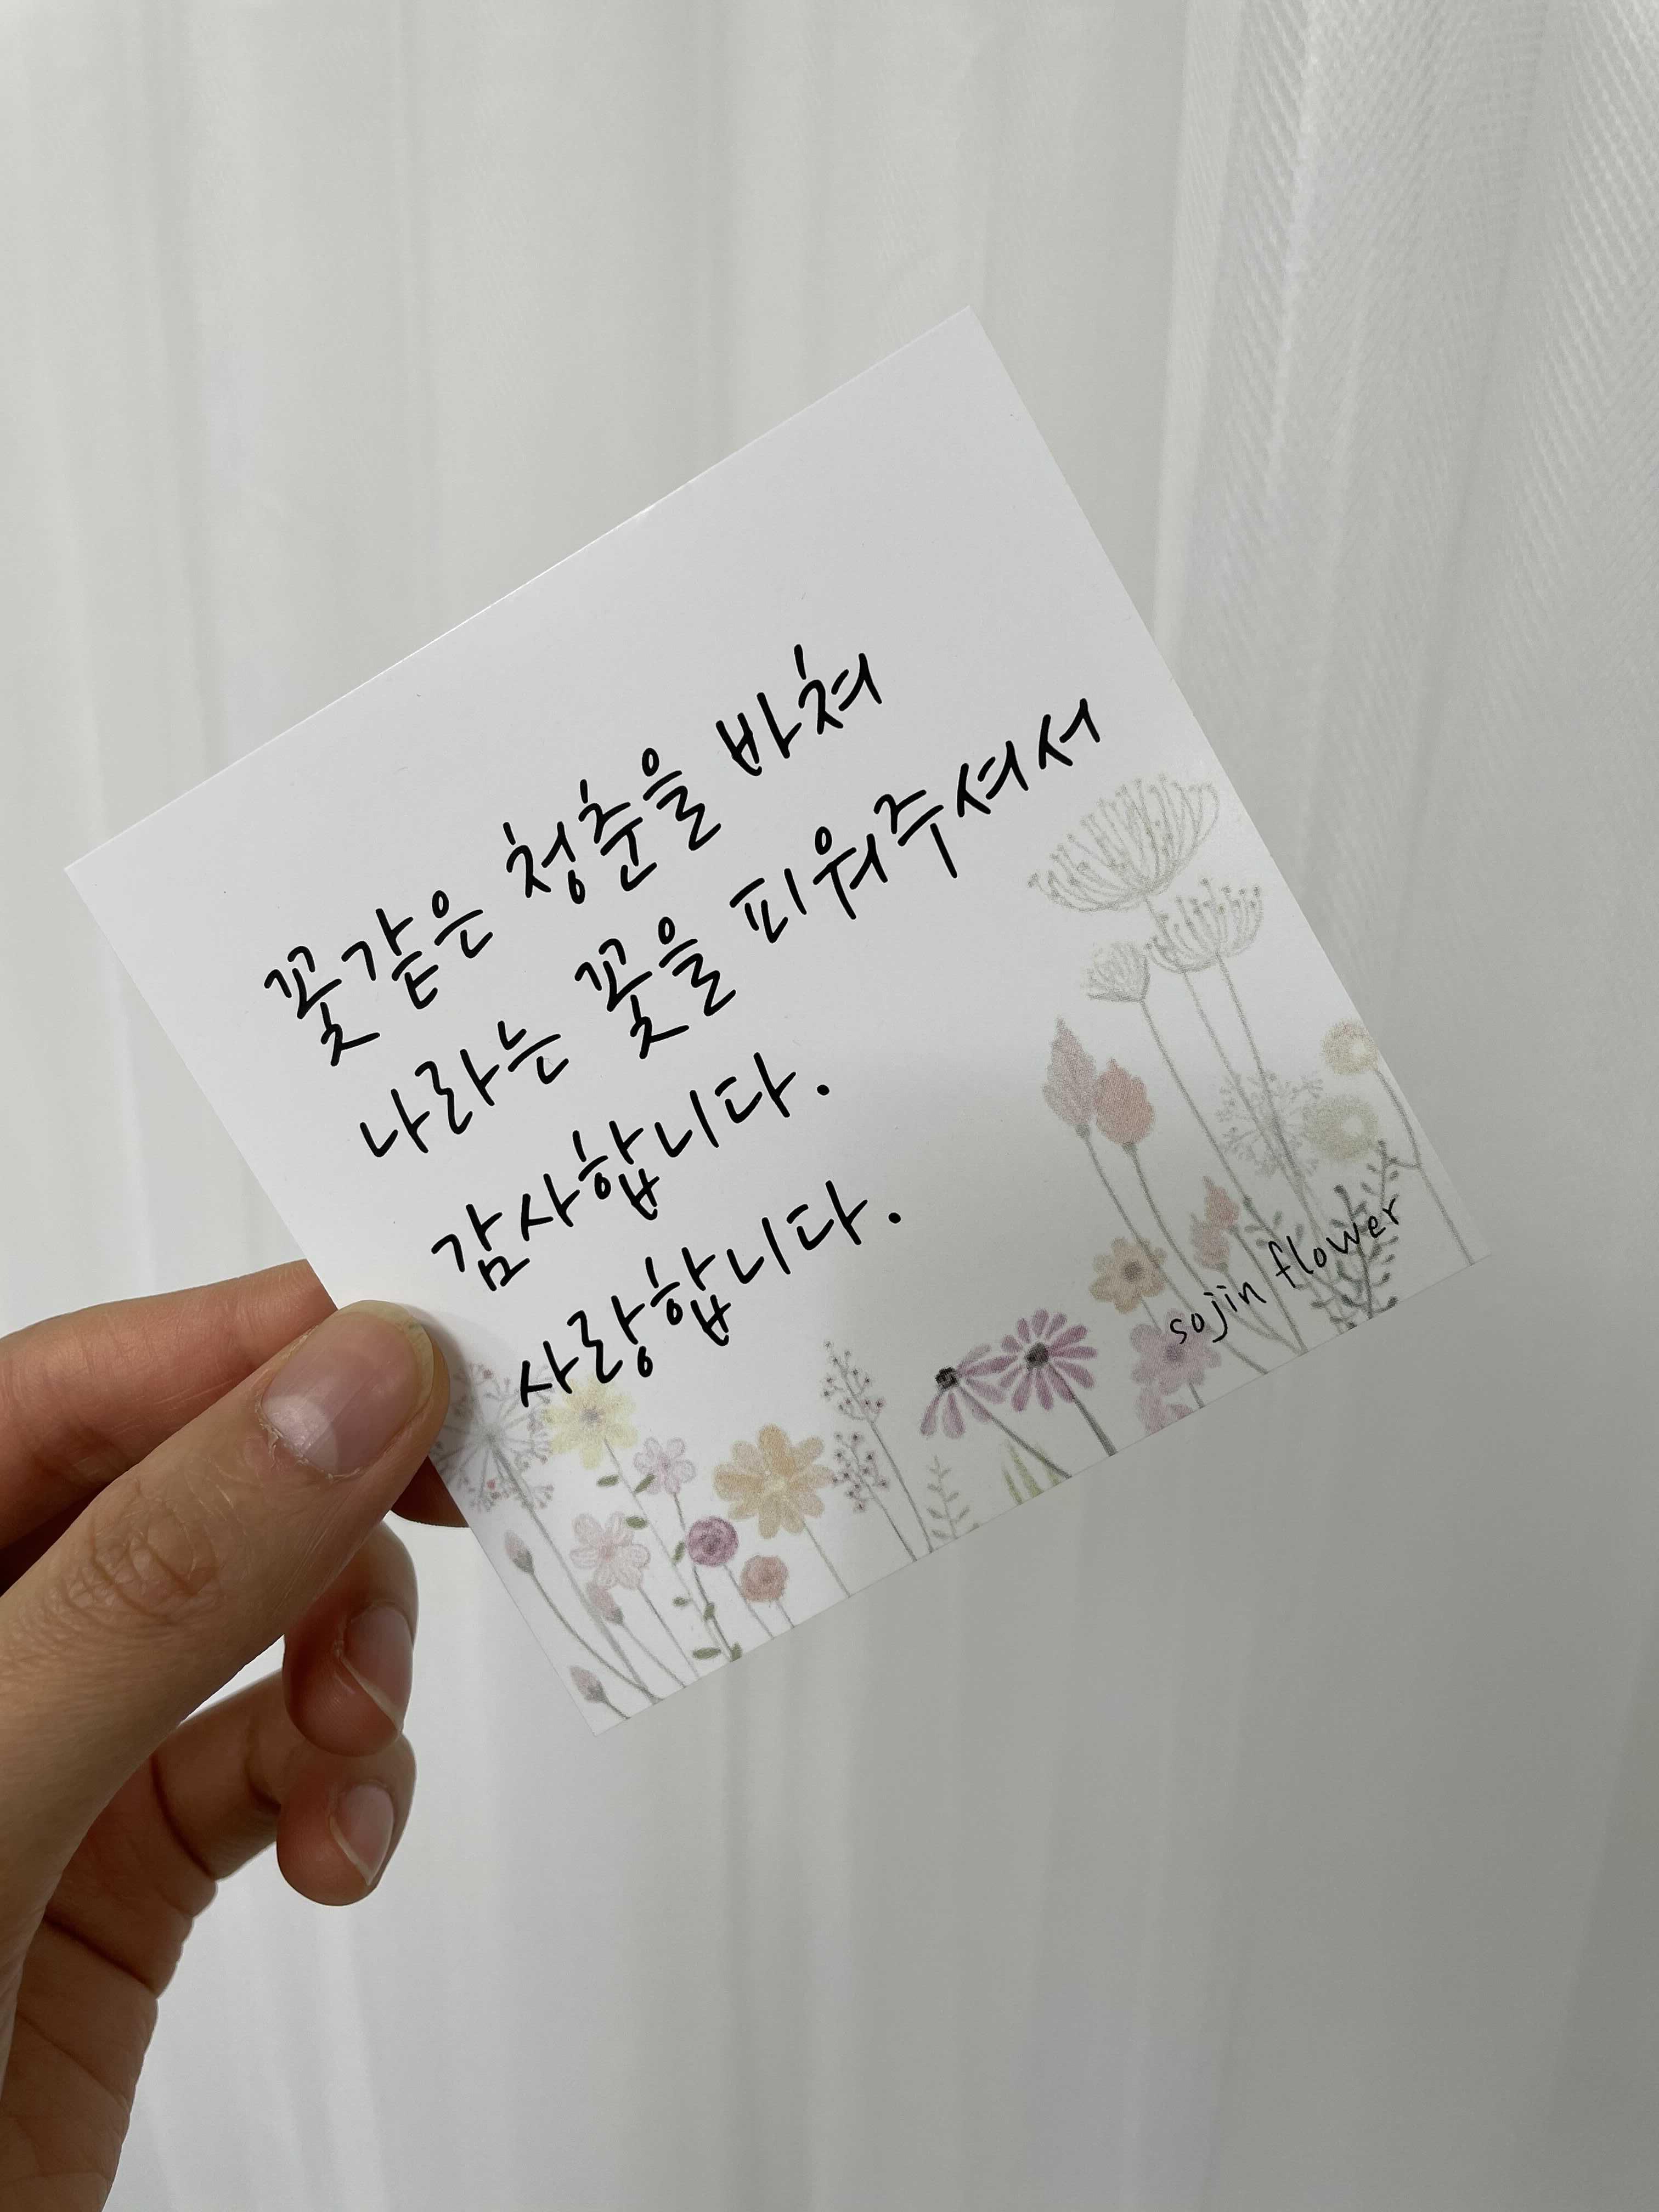 꽃같은 청춘을 바쳐
나라는 꽃을 피워주셔서
감사합니다.
사랑합니다.
sojin flower